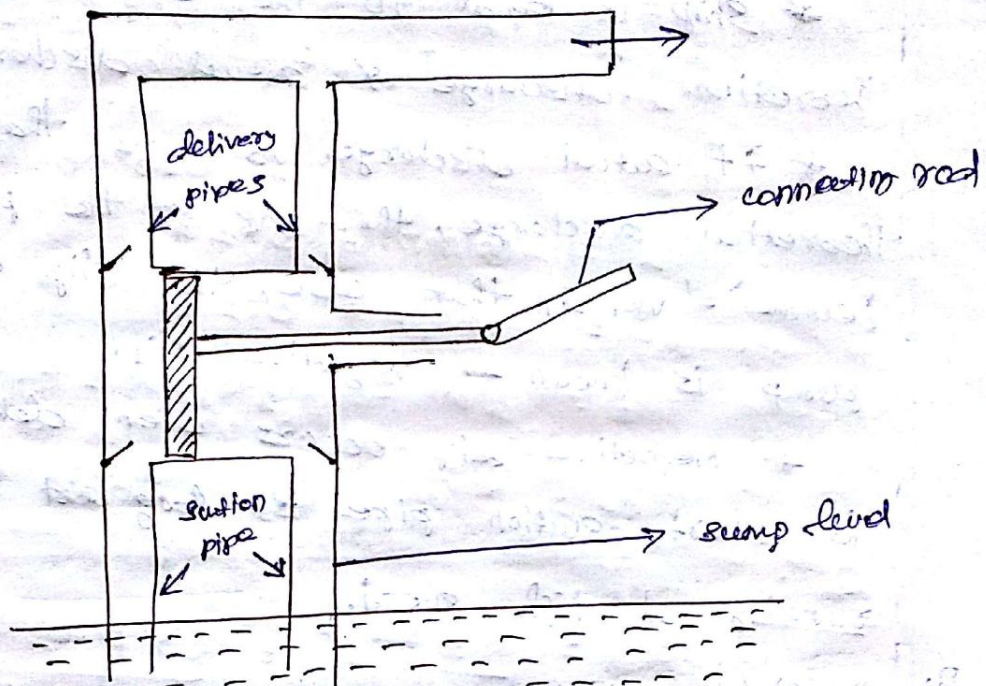 delivery
pipes
connecting rod
suction
pipe
sump level